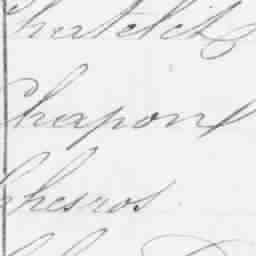 Chatelet
Chapon
Chesros